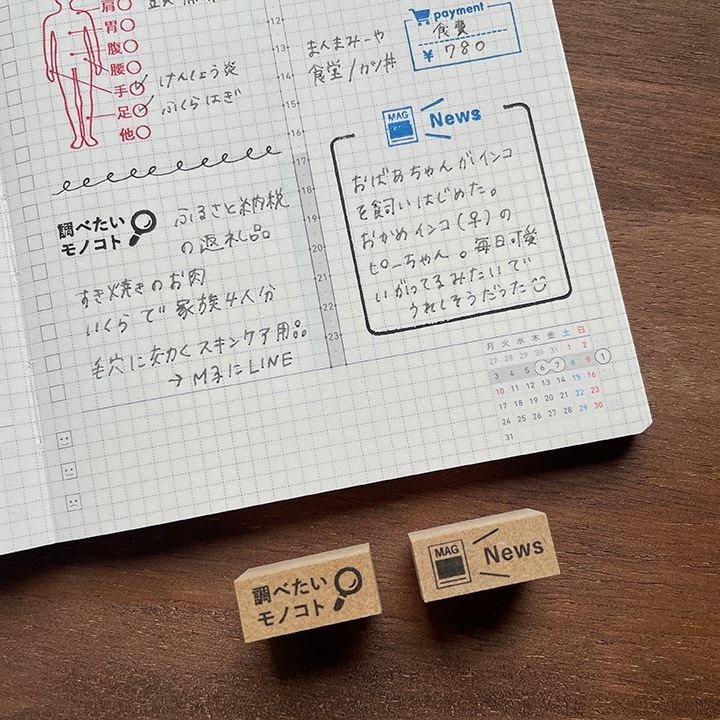 肩
胃
腹
腰
手 けんしょう炎
足 ふくらはぎ
他
調べたい
モノコト
ふるさと納税
の返礼品
すき焼きのお肉
いくらで家族4人分
毛穴に効くスキンケア用品
→M子にLINE
12
13
14
15
16
17
18
19
20
21
22
23
payment
食費
¥ 780
まんまみーや
食堂/カツ丼
MAG
News
おばあちゃんがインコ
を飼いはじめた。
おかめインコ(♀)の
ピーちゃん。毎日可愛
いがってるみたいで
うれしそうだった
月 火 水 木 金 土 日
27 28 29 30 31 1 2
3 4 5 6 7 8 9 1
10 11 12 13 14 15 16
17 18 19 20 21 22 23
24 25 26 27 28 29 30
31
調べたい
モノコト
MAG
News